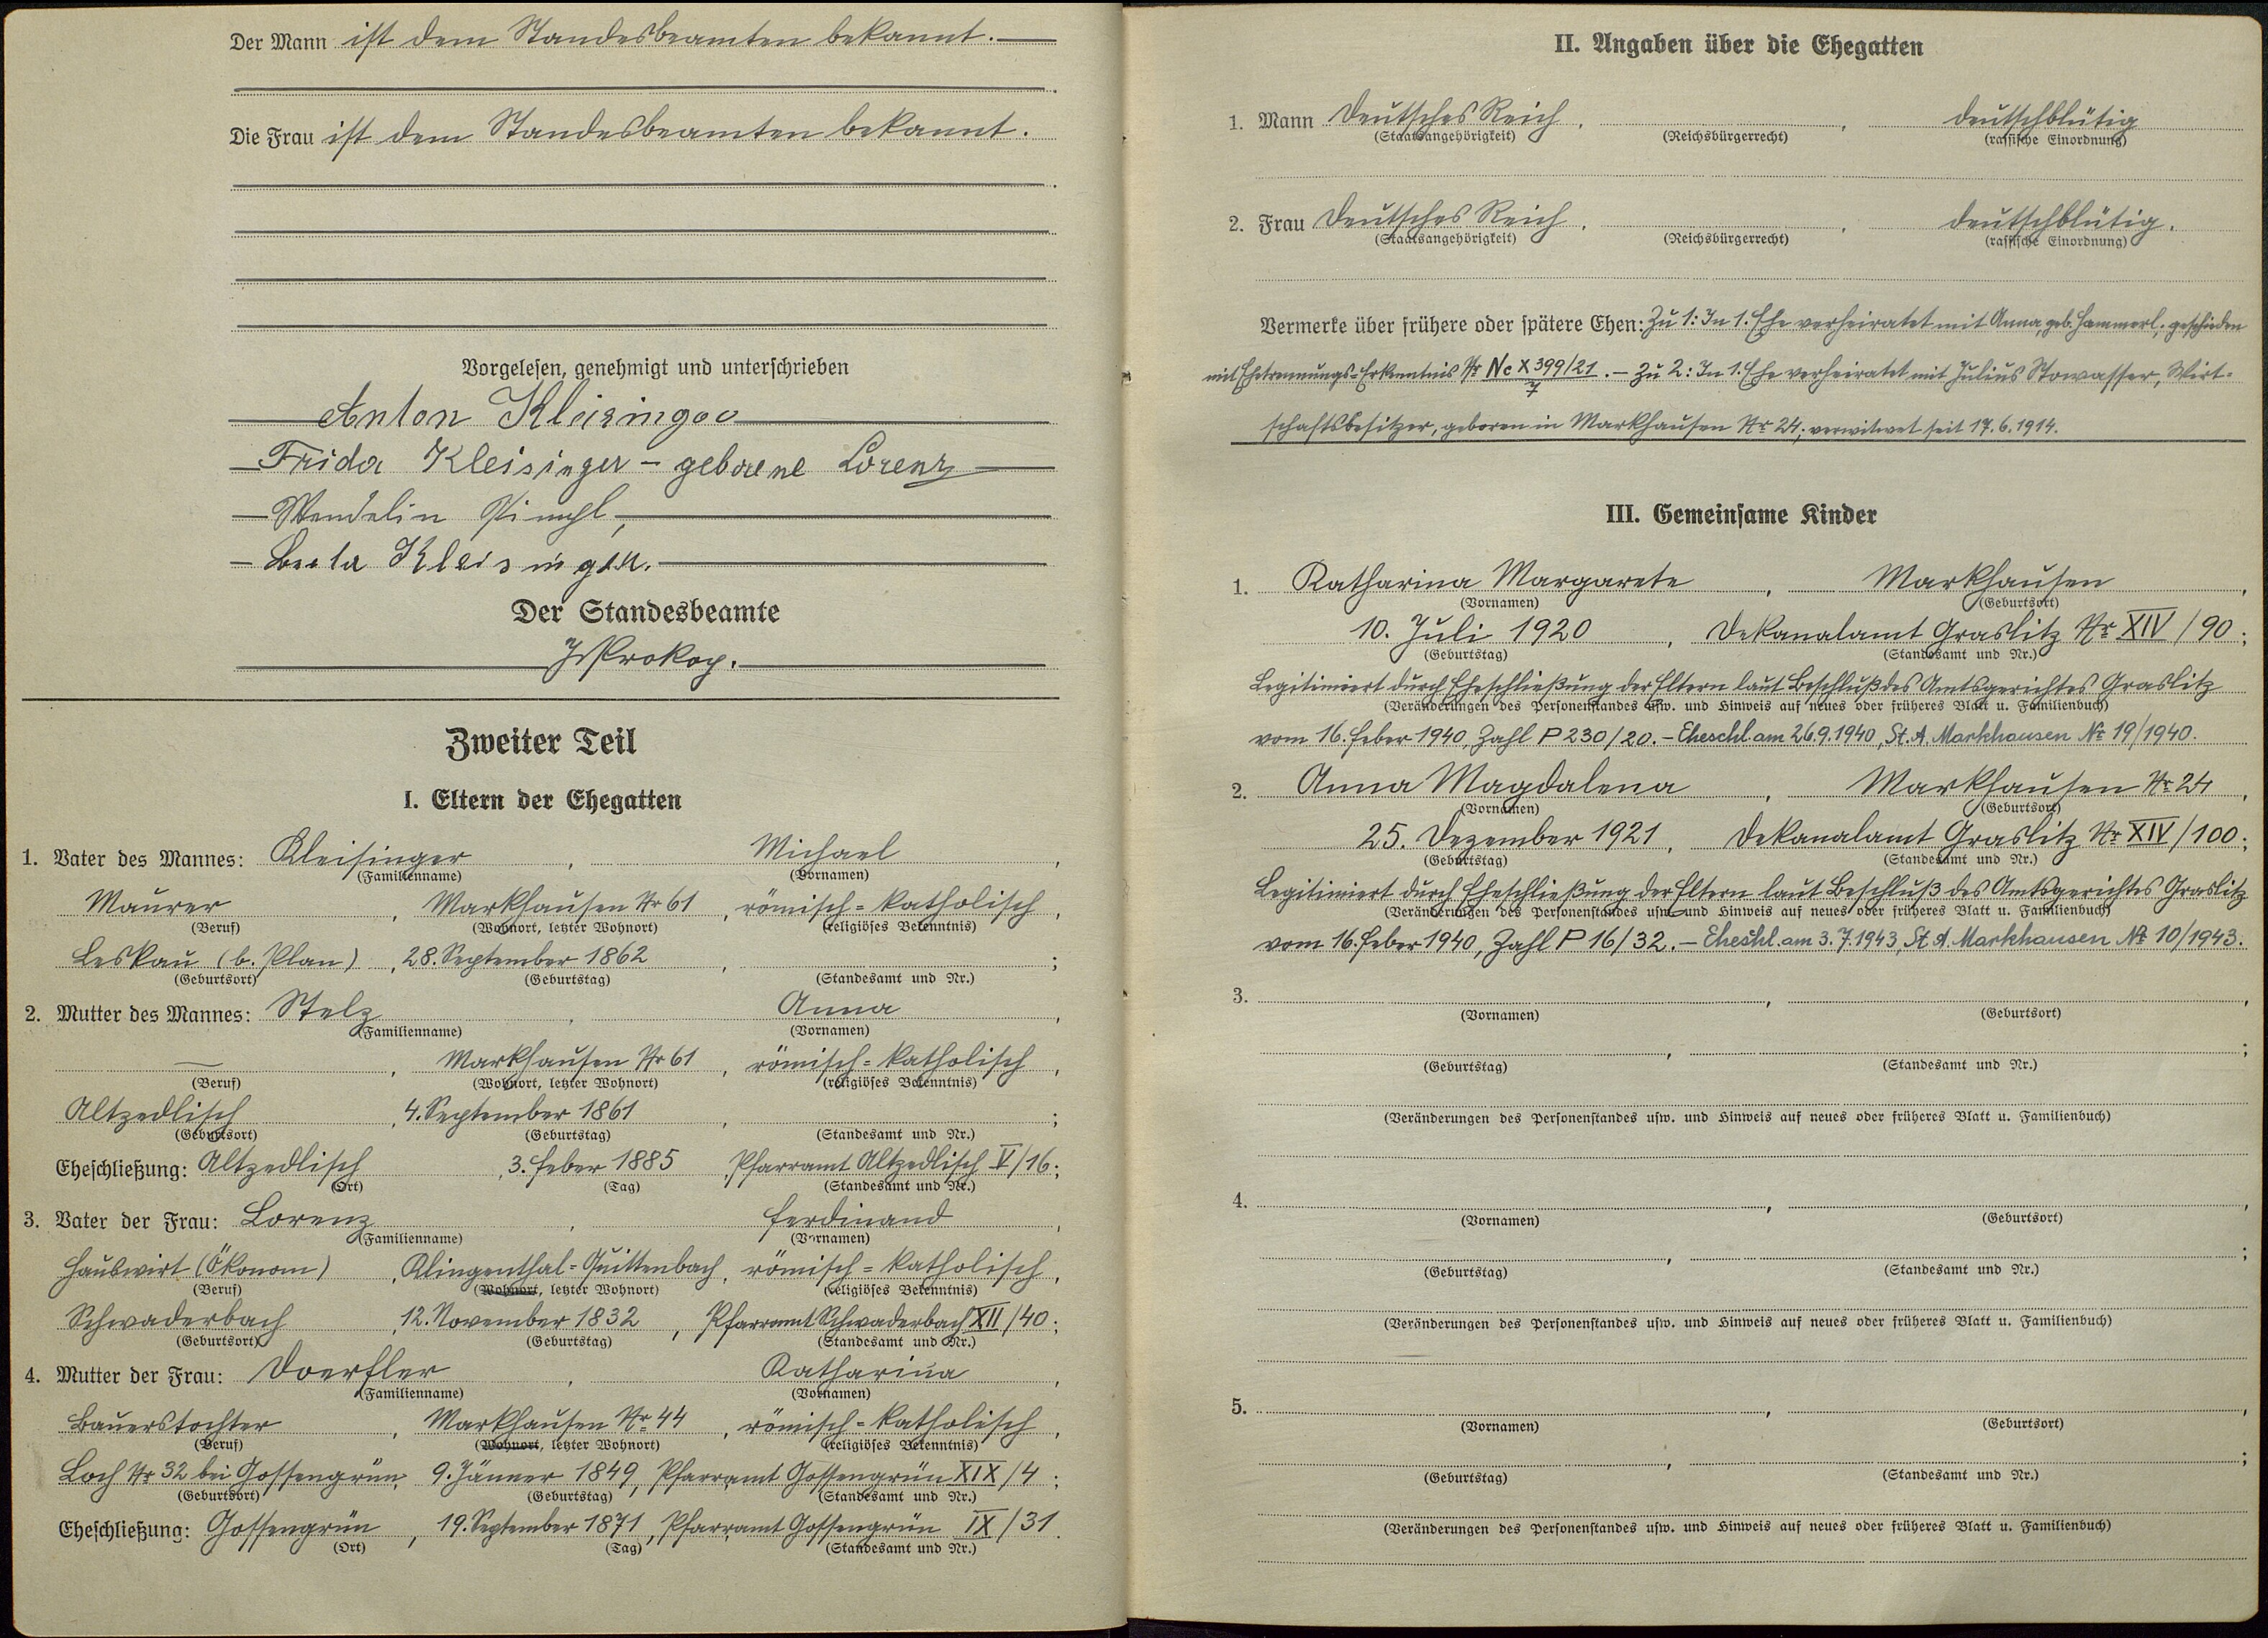 Der Mann ist dem Standesbeamten bekannt.
Die Frau ist dem Standesbeamten bekannt.
Vorgelesen, genehmigt und unterschrieben
Anton Kleisinger
Frida Kleisinger - geborene Lorenz
Wendelin
Berta Kleisinger.
Der Standesbeamte
Prokop.
Zweiter Teil
I. Eltern der Ehegatten
1. Vater des Mannes: Kleisinger, Michael,
(Familienname) (Vornamen)
Maurer, Markhausen Nr 61, römisch-katholisch,
(Beruf) (Wohnort, letzter Wohnort) (religiöses Bekenntnis)
Leskau (b. Plan), 28. September 1862, ;
(Geburtsort) (Geburtstag) (Standesamt und Nr.)
2. Mutter des Mannes: Stelz, Anna,
(Familienname) (Vornamen)
—, Markhausen Nr 61, römisch-katholisch,
(Beruf) (Wohnort, letzter Wohnort) (religiöses Bekenntnis)
Altzedlisch, 4. September 1861, ;
(Geburtsort) (Geburtstag) (Standesamt und Nr.)
Eheschließung: Altzedlisch, 3. Feber 1885, Pfarramt Altzedlisch V/16;
(Ort) (Tag) (Standesamt und Nr.)
3. Vater der Frau: Lorenz, Ferdinand,
(Familienname) (Vornamen)
Hauswirt (Ökonom), Klingenthal-Quittenbach, römisch-katholisch,
(Beruf) (Wohnort, letzter Wohnort) (religiöses Bekenntnis)
Schwaderbach, 12. November 1832, Pfarramt Schwaderbach XII/40;
(Geburtsort) (Geburtstag) (Standesamt und Nr.)
4. Mutter der Frau: Doerfler, Katharina,
(Familienname) (Vornamen)
Bauerstochter, Markhausen Nr. 44, römisch-katholisch,
(Beruf) (Wohnort, letzter Wohnort) (religiöses Bekenntnis)
Loch Nr 32 bei Gossengrün, 9. Jänner 1849, Pfarramt Gossengrün XIX/4;
(Geburtsort) (Geburtstag) (Standesamt und Nr.)
Eheschließung: Gossengrün, 19. September 1871, Pfarramt Gossengrün IX/31.
(Ort) (Tag) (Standesamt und Nr.)
II. Angaben über die Ehegatten
1. Mann Deutsches Reich, , deutschblütig
(Staatsangehörigkeit) (Reichsbürgerrecht) (rassische Einordnung)
2. Frau Deutsches Reich, , deutschblütig.
(Staatsangehörigkeit) (Reichsbürgerrecht) (rassische Einordnung)
Vermerke über frühere oder spätere Ehen: Zu 1: In 1. Ehe verheiratet mit Anna, geb. Hammerl; geschieden
mit Ehetrennungs-Erkenntnis Nr Nc X 399/21. - Zu 2: In 1. Ehe verheiratet mit Julius Stowasser, Wirt-
7
schaftsbesitzer, geboren in Markhausen Nr. 24; verwitwet seit 17.6.1914.
III. Gemeinsame Kinder
1. Katharina Margarete, Markhausen,
(Vornamen) (Geburtsort)
10. Juli 1920, Dekanalamt Graslitz Nr XIV/90;
(Geburtstag) (Standesamt und Nr.)
Legitimiert durch Eheschließung der Eltern laut Beschluß des Amtsgerichtes Graslitz
(Veränderungen des Personenstandes usw. und Hinweis auf neues oder früheres Blatt u. Familienbuch)
vom 16. Feber 1940, Zahl P 230/20. - Eheschl. am 26.9.1940, St. A. Markhausen Nr 19/1940.
2. Anna Magdalena, Markhausen Nr 24,
(Vornamen) (Geburtsort)
25. Dezember 1921, Dekanalamt Graslitz Nr XIV/100;
(Geburtstag) (Standesamt und Nr.)
Legitimiert durch Eheschließung der Eltern laut Beschluß des Amtsgerichtes Graslitz
(Veränderungen des Personenstandes usw. und Hinweis auf neues oder früheres Blatt u. Familienbuch)
vom 16. Feber 1940, Zahl P 16/32. - Eheschl. am 3.7.1943, St. A. Markhausen Nr 10/1943.
3. , ,
(Vornamen) (Geburtsort)
(Geburtstag) (Standesamt und Nr.)
(Veränderungen des Personenstandes usw. und Hinweis auf neues oder früheres Blatt u. Familienbuch)
4. , ,
(Vornamen) (Geburtsort)
(Geburtstag) (Standesamt und Nr.)
(Veränderungen des Personenstandes usw. und Hinweis auf neues oder früheres Blatt u. Familienbuch)
5. , ,
(Vornamen) (Geburtsort)
(Geburtstag) (Standesamt und Nr.)
(Veränderungen des Personenstandes usw. und Hinweis auf neues oder früheres Blatt u. Familienbuch)